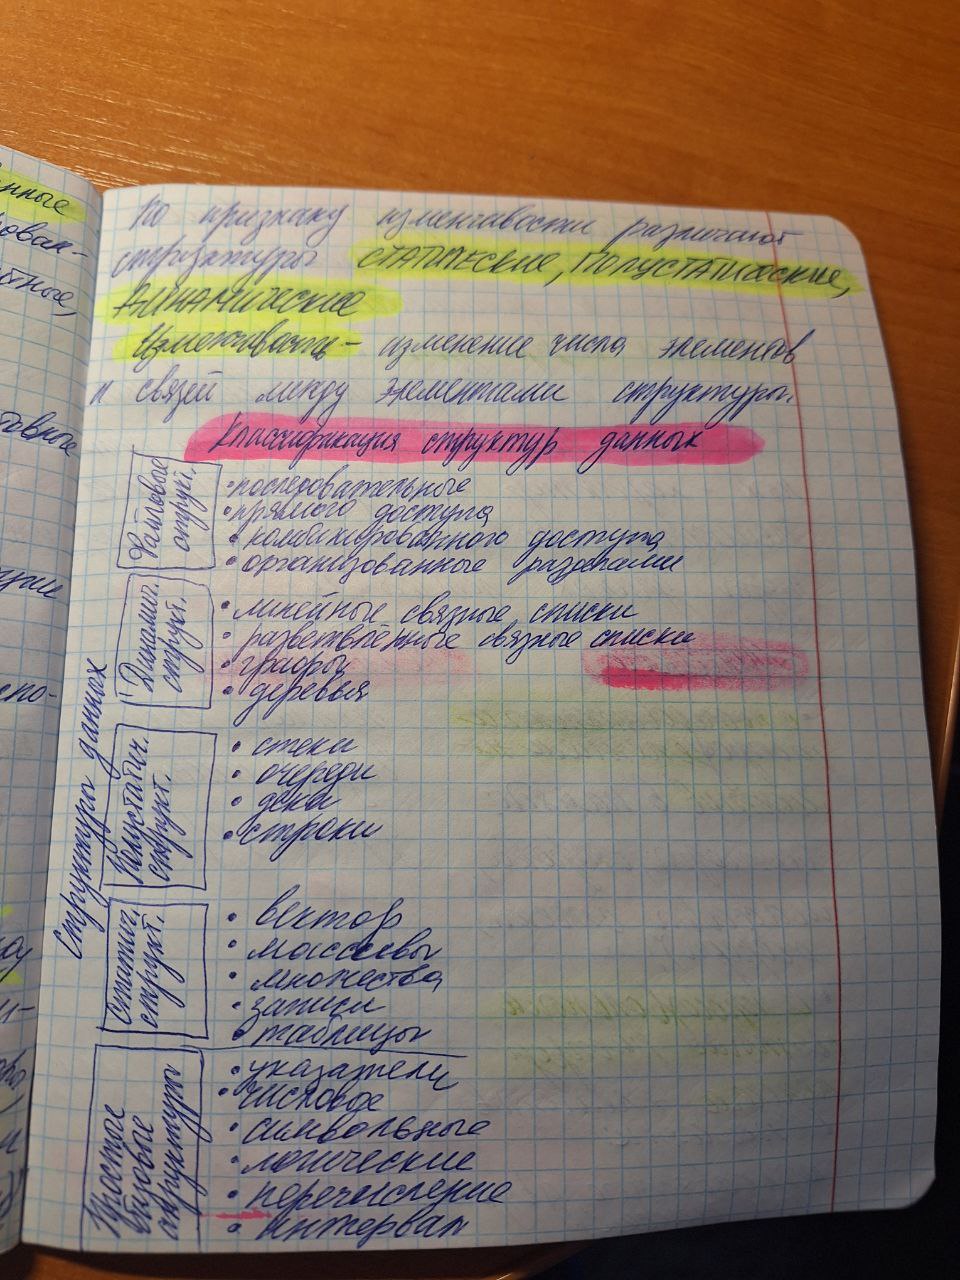 По признаку изменчивости различают
структуры СТАТИЧЕСКИЕ, ПОЛУСТАТИЧЕСКИЕ,
ДИНАМИЧЕСКИЕ
Изменчивость - изменение числа элементов
и связей между элементами структуры.
Классификация структур данных
Структуры данных
Файловые
структ.
• последовательные
• прямого доступа
• комбинированного доступа
• организованные разделами
Динамич.
структ.
• линейные связные списки
• разветвлённые связные списки
• графы
• деревья
Полустатич.
структ.
• стеки
• очереди
• деки
• строки
Статич.
структ.
• вектор
• массивы
• множества
• записи
• таблицы
Простые
базовые
структуры
• указатели
• числовое
• символьные
• логические
• перечисление
• интервал